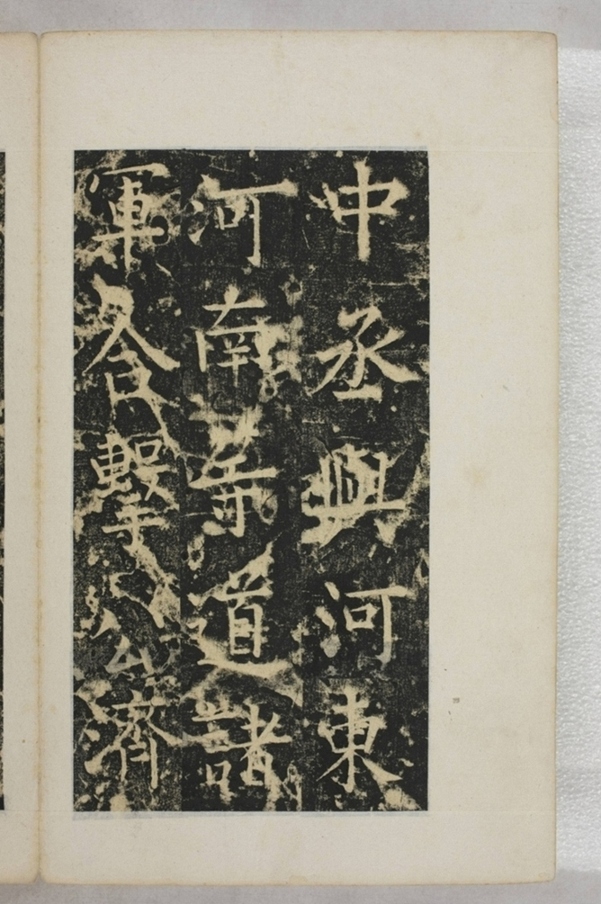 中丞與河東
河南等道諸
軍合擊公濟